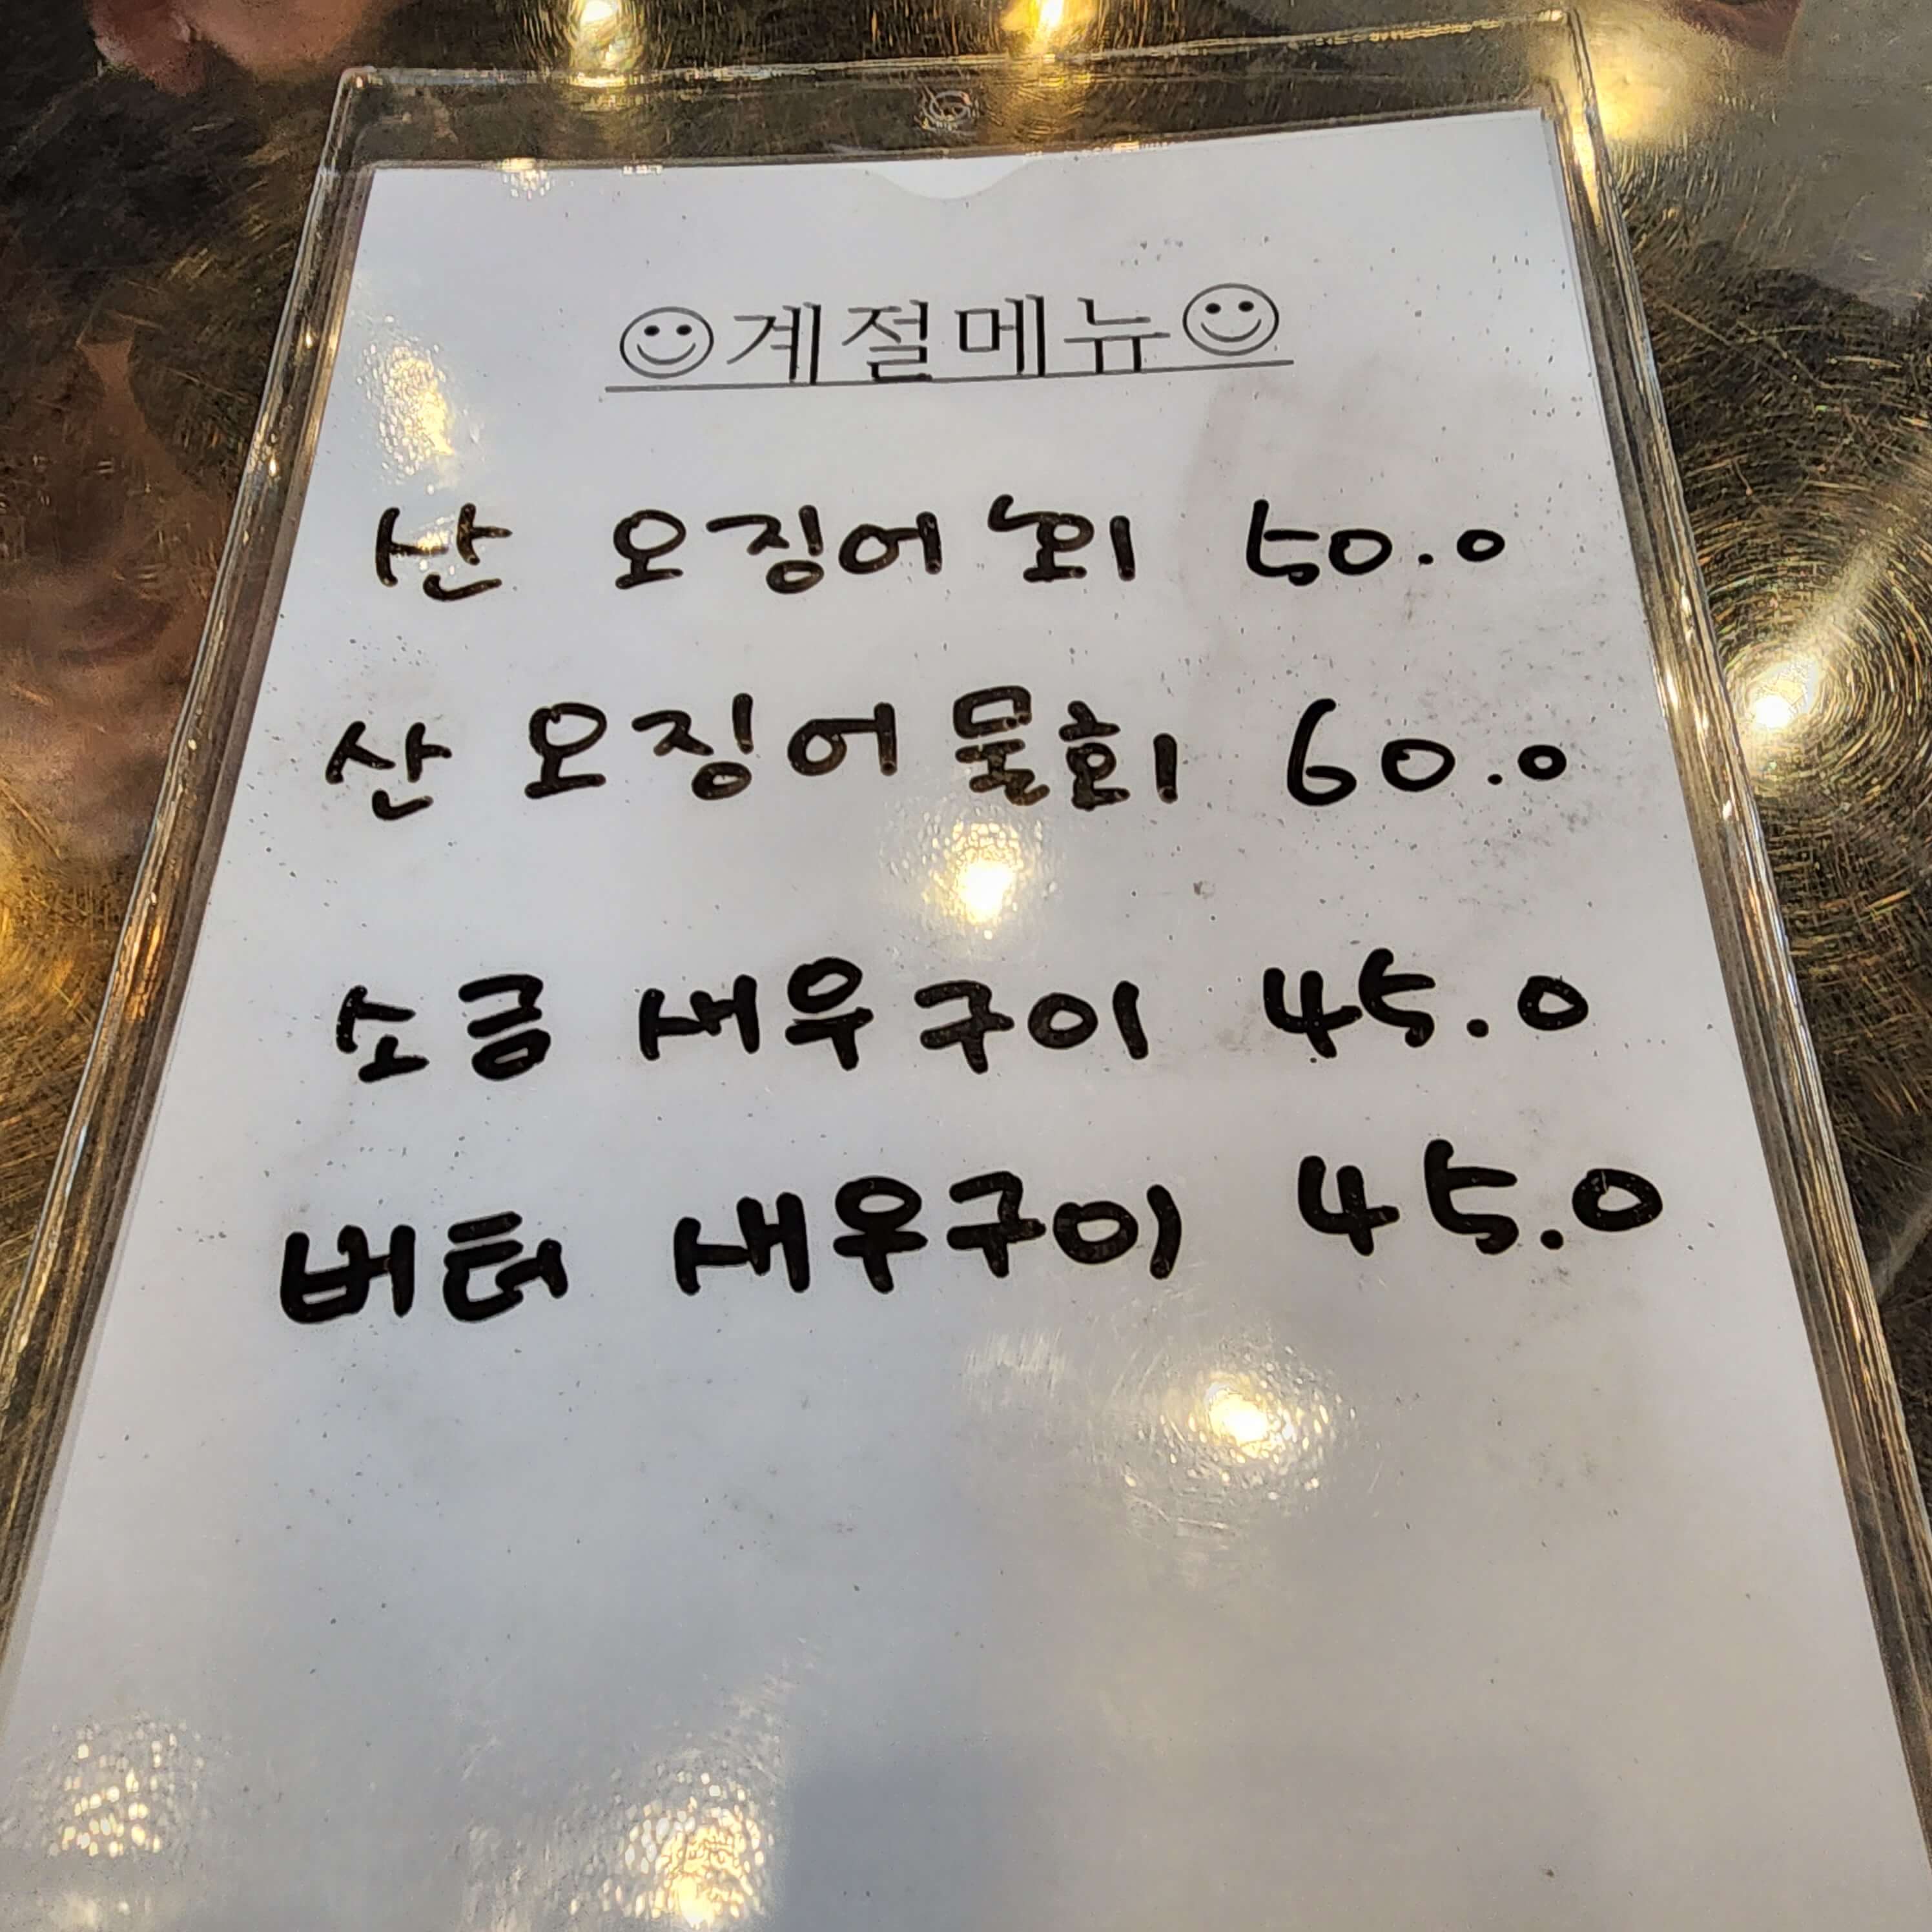 ☺계절메뉴☺
산 오징어 회 50.0
산 오징어 물회 60.0
소금 새우구이 45.0
버터 새우구이 45.0